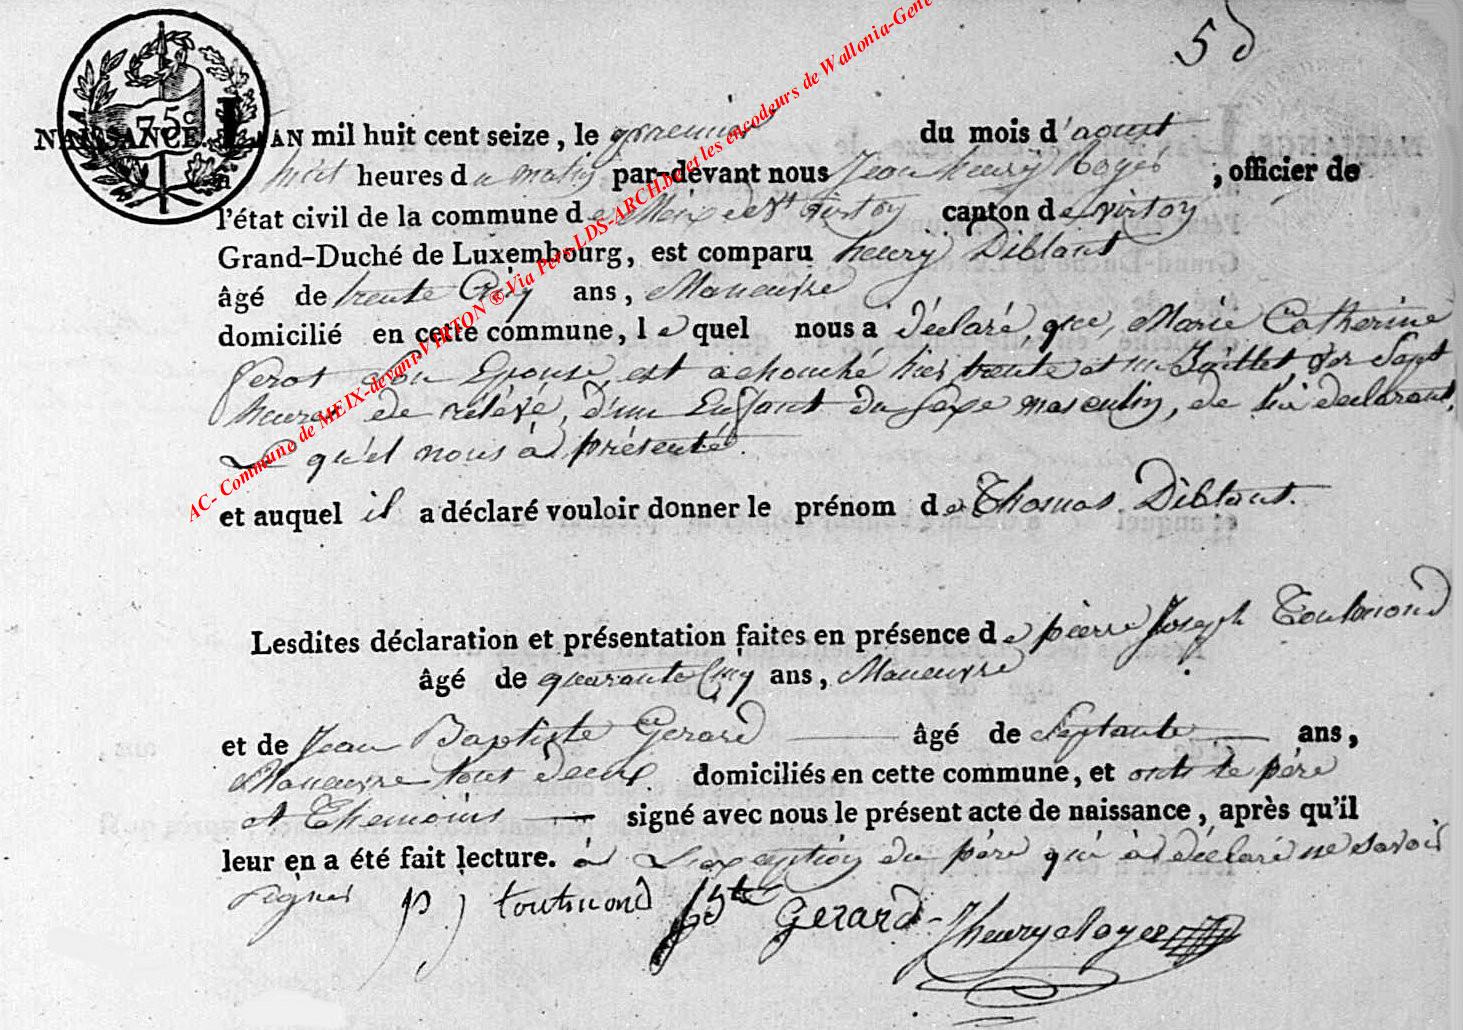 5
75 c
NAISSANCE. L'AN mil huit cent seize, le premier du mois d'aoust
à huit heures du matin par-devant nous Jean henry Roger, officier de
l'état civil de la commune de Meix devt virton canton de virton
Grand-Duché de Luxembourg, est comparu henry Diblant
âgé de trente Cinq ans, Maneuvre
domicilié en cette commune, lequel nous a déclaré, que, Marie Catherine
son Epouse, est achouché hier trente et un Juillet, Sept
heures de rélévé, d'un Enfant du sexe masculin, de lui declarant,
Le qu'el nous à présenté.
et auquel il a déclaré vouloir donner le prénom de Thomas Diblant.
Lesdites déclaration et présentation faites en présence de pierre Joseph Toutmond
âgé de quarante Cinq ans, Maneuvre
et de Jean Baptiste Gerard âgé de Septante ans,
Maneuvre tout deux domiciliés en cette commune, et ont le père
et Themoins signé avec nous le présent acte de naissance, après qu'il
leur en a été fait lecture. à L'exception du père qui à déclaré ne savoir
signer p j toutmond jbte Gerard
AC- Commune de MEIX-devant-VIRTON ® Via Pers-LDS-ARCH.be et les encodeurs de Wallonia-Gene